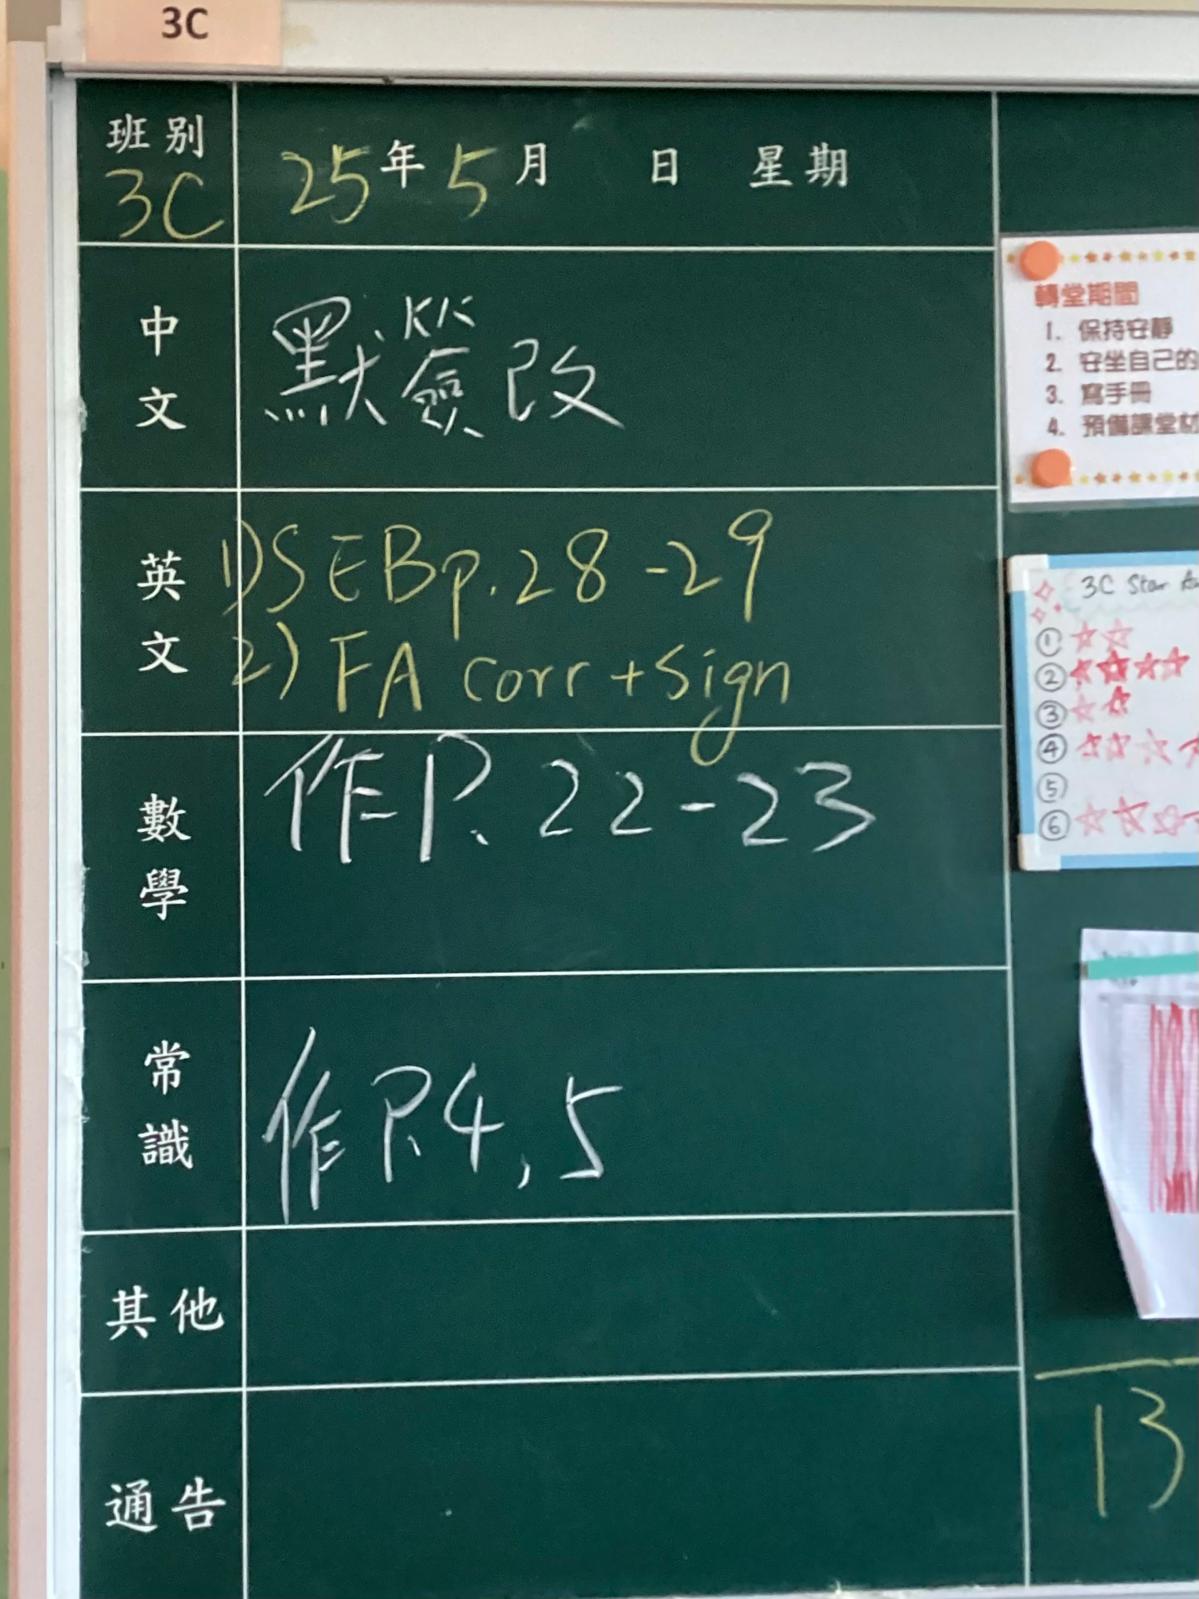 3C
班別
3C
25年5月 日 星期
中文
默簽改
英文
1)SEBp.28-29
2) FA corr+sign
數學
作P.22-23
常識
作P.4,5
其他
通告
轉堂期間
1. 保持安靜
2. 安坐自己的
3. 寫手冊
4. 預備課堂材
3C Star
①
②
③
④
⑤
⑥
13